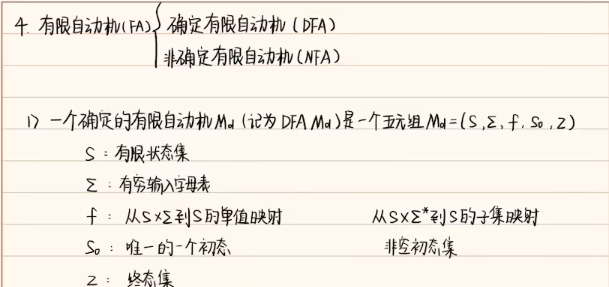 4. 有限自动机(FA) 确定有限自动机 (DFA)
非确定有限自动机 (NFA)
1) 一个确定的有限自动机Md (记为 DFA Md)是一个五元组 Md=(S,Σ,f,S0,Z)
S:有限状态集
Σ:有穷输入字母表
f:从S×Σ到S的单值映射 从S×Σ*到S的子集映射
S0:唯一的一个初态 非空初态集
Z:终态集